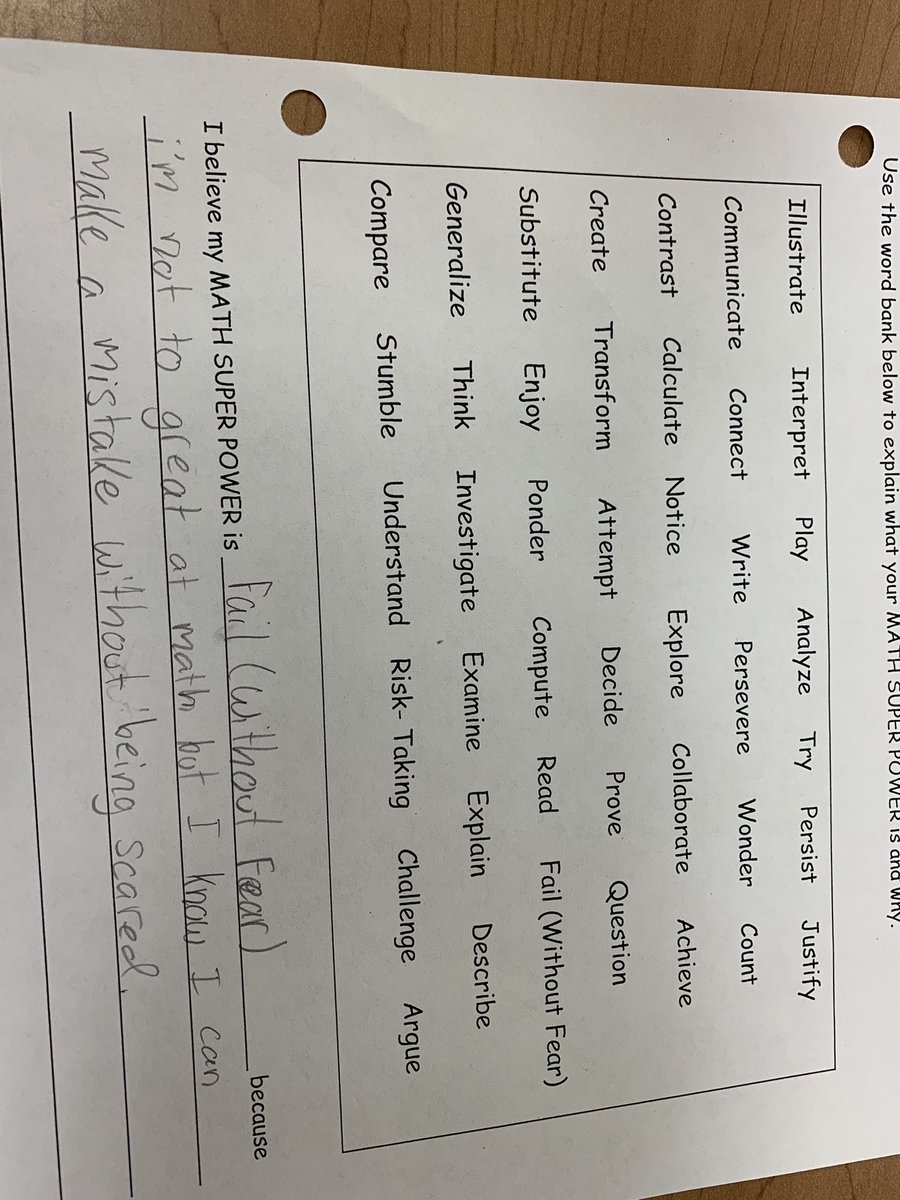 Use the word bank below to explain what your MATH SUPER POWER is and why.
Illustrate Interpret Play Analyze Try Persist Justify
Communicate Connect Write Persevere Wonder Count
Contrast Calculate Notice Explore Collaborate Achieve
Create Transform Attempt Decide Prove Question
Substitute Enjoy Ponder Compute Read Fail (Without Fear)
Generalize Think Investigate Examine Explain Describe
Compare Stumble Understand Risk- Taking Challenge Argue
I believe my MATH SUPER POWER is Fail (Without Fear) because
i'm not to great at math but I know I can
make a mistake without being scared.